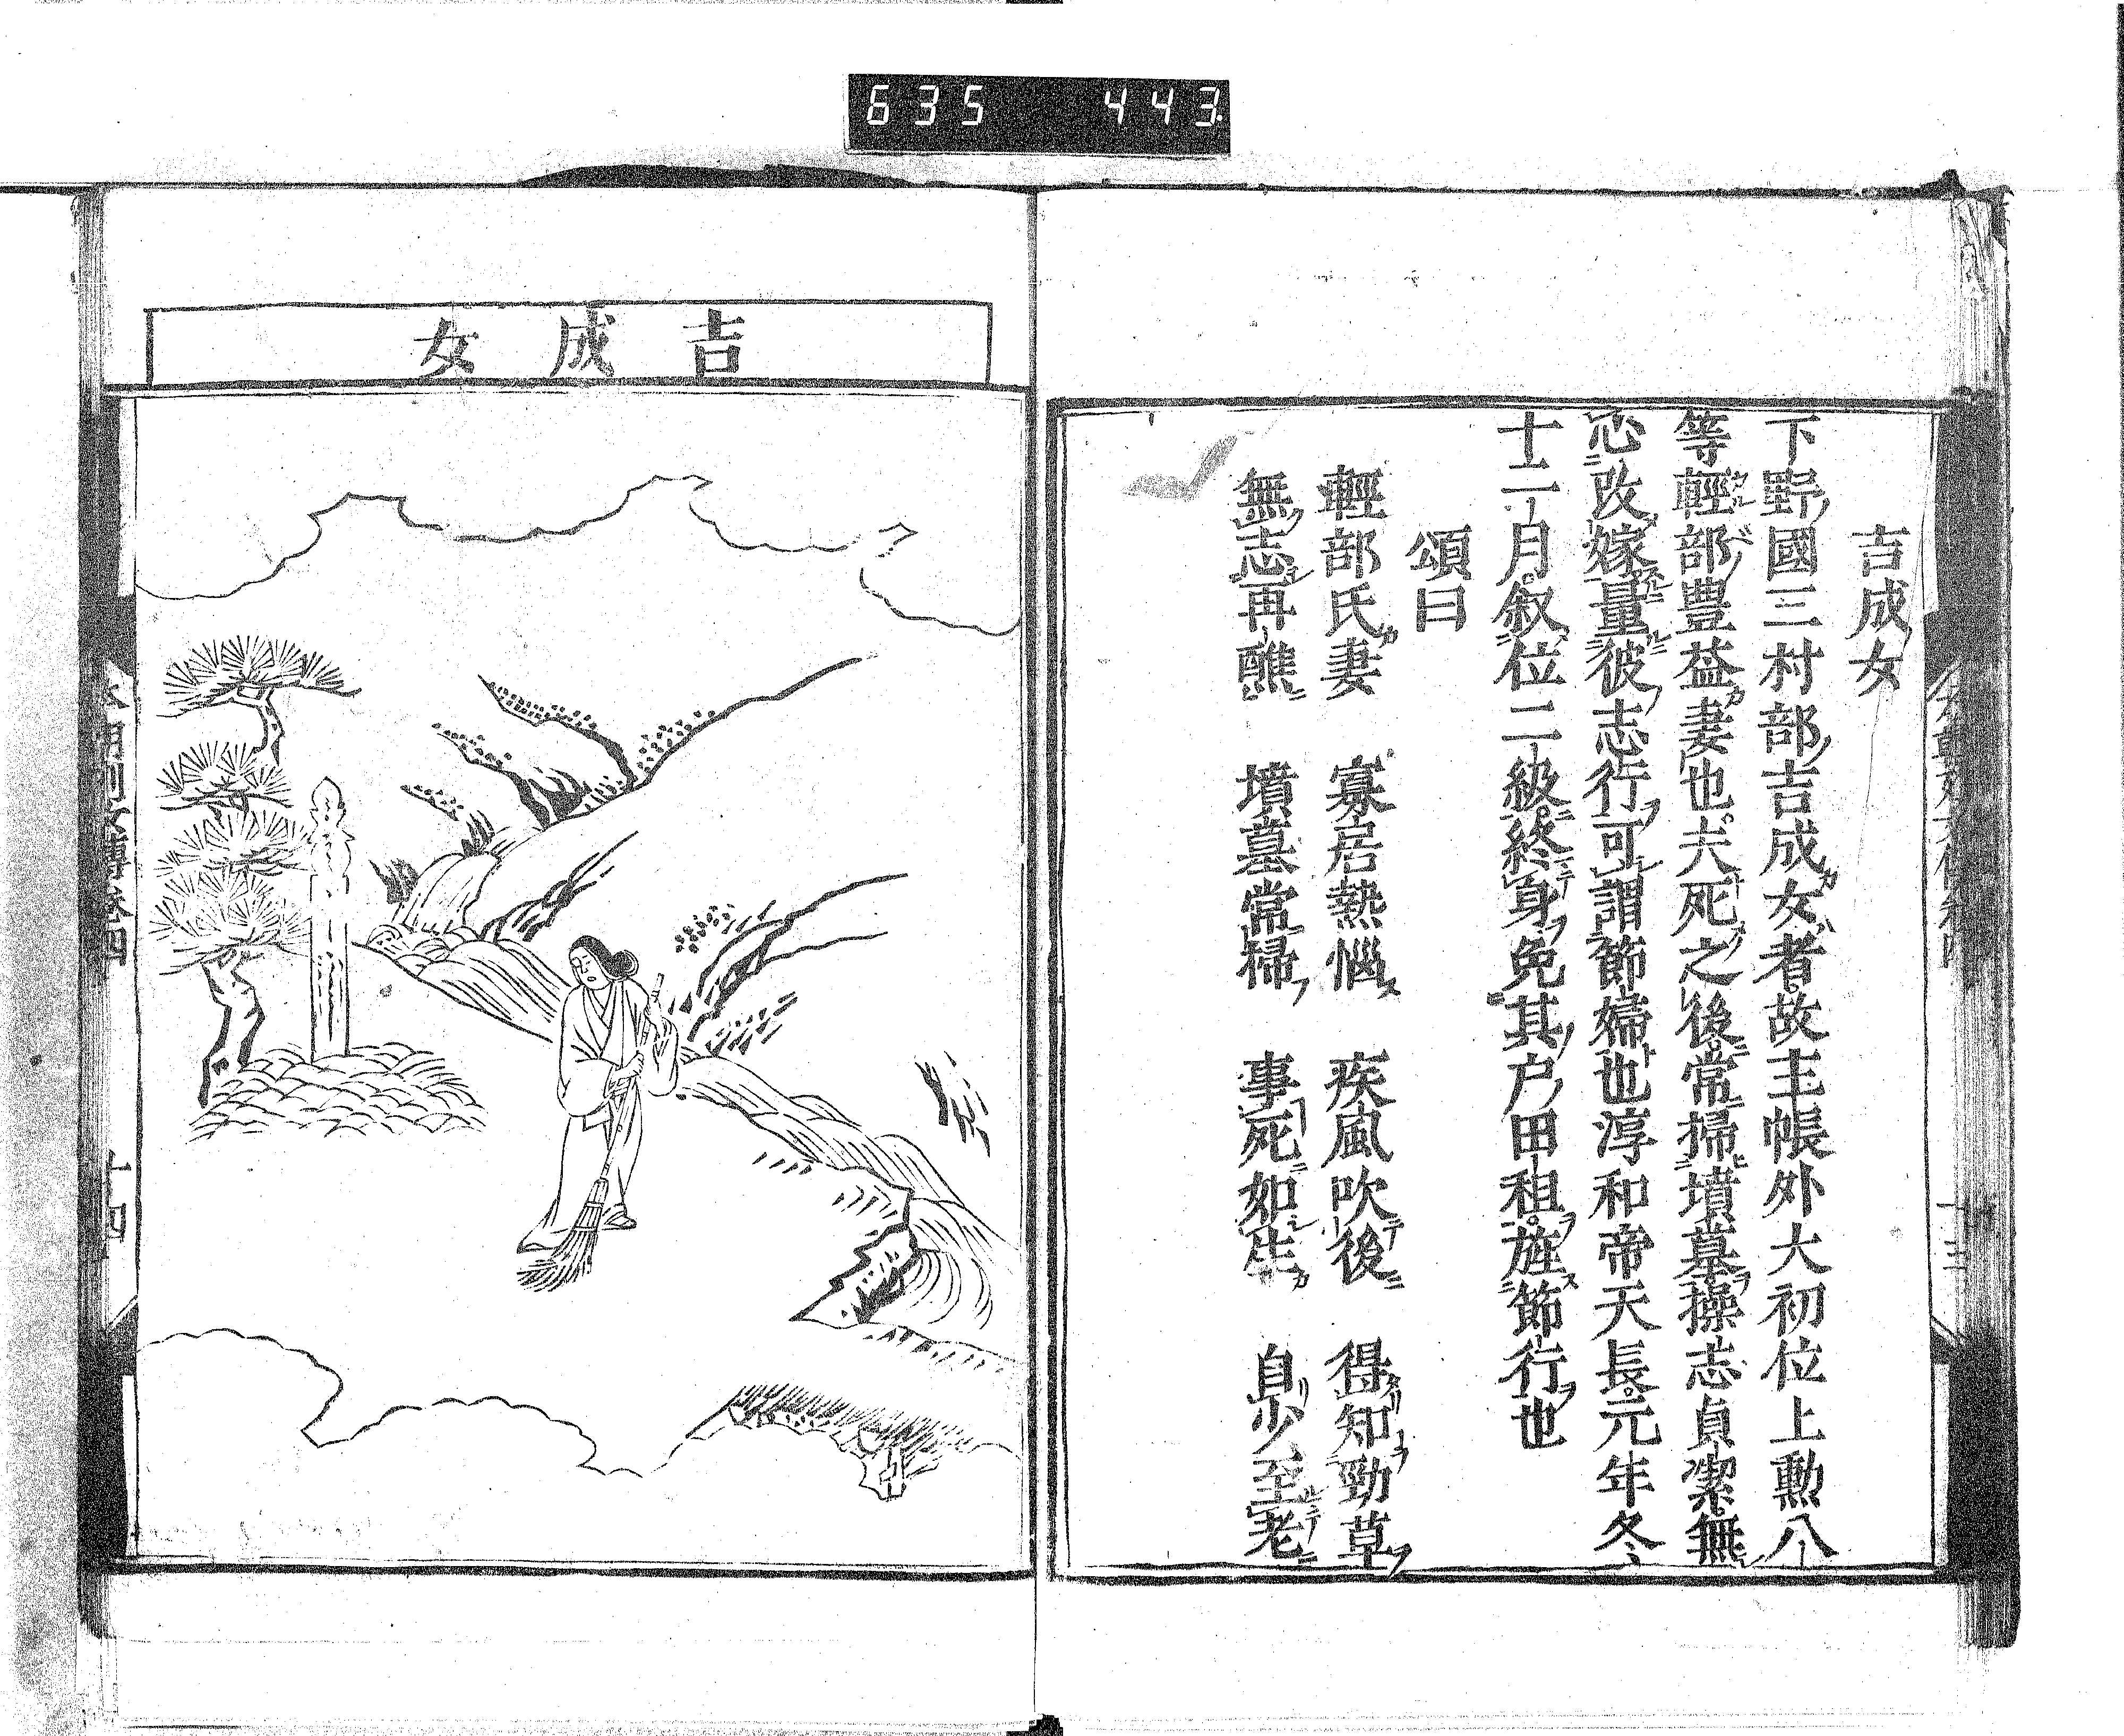 635 443
吉成女
下野國三村部吉成女者故主帳外大初位上勲八
等輕部豊益妻也夫死之後常掃墳墓操志貞潔無
心改嫁量彼志行可謂節婦也淳和帝天長元年冬
十二月叙位二級終身免其戸田租旌節行也
頌曰
輕部氏妻 寡居熱惱 疾風吹後 得知勁草
無志再醮 墳墓常掃 事死如生 自少至老
吉成女
本朝列女傳卷四 十四